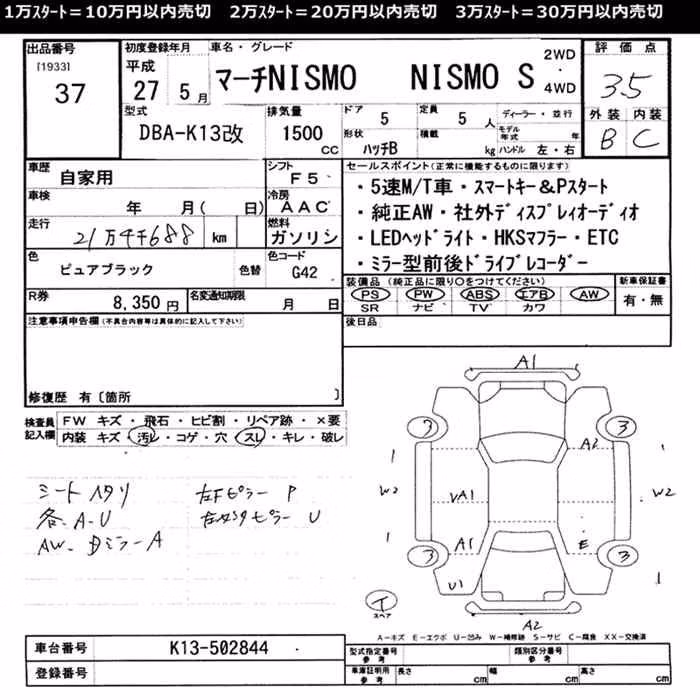 1万ｽﾀｰﾄ＝10万円以内売切　2万ｽﾀｰﾄ＝20万円以内売切　3万ｽﾀｰﾄ＝30万円以内売切
出品番号 初度登録年月 車名・グレード 評価点
[1933] 平成 2WD
37 27 5月 マーチNISMO NISMO S ・ 3.5
4WD
型式 排気量 ドア 定員 ディーラー・並行 外装 内装
DBA-K13改 1500 CC 5 5人 モデル年式 年 B C
形状 積載
ハッチB kg ハンドル 左・右
車歴 シフト セールスポイント(正常に機能するものに限ります)
自家用 F5 ・5速M/T車・スマートキー&Pスタート
車検 冷房
年 月( 日) AAC ・純正AW・社外ディスプレィオーディオ
走行 燃料
21万4千688 km ガソリン ・LEDヘッドライト・HKSマフラー・ETC
色 色コード ・ミラー型前後ドライブレコーダー
ピュアブラック 色替 G42
装備品 (純正品に限り○をつけてください) 新車保証書
R券 名変通知期限 PS PW ABS エアB AW 有・無
8,350円 月 日 SR ナビ TV カワ
注意事項申告欄(不具合内容等は具体的に記入して下さい) 後日品
修復歴 有〔箇所 〕
検査員記入欄 FW キズ・飛石・ヒビ割・リペア跡・×要
内装 キズ・汚レ・コゲ・穴・スレ・キレ・破レ
シートヘタリ 左Fピラー P
各 A-U
AW. Dミラー A
A1
3 3
A2
1 1
W2 VA1 W2
1 A1 E
3 3
U1 1
イ
スペア
A2
A－キズ E－エクボ U－凹み W－補修跡 S－サビ C－腐食 XX－交換済
車台番号 K13-502844 型式指定番号 参考 類別区分番号 参考
登録番号 車庫証明用 参考 長さ cm 幅 cm 高さ cm